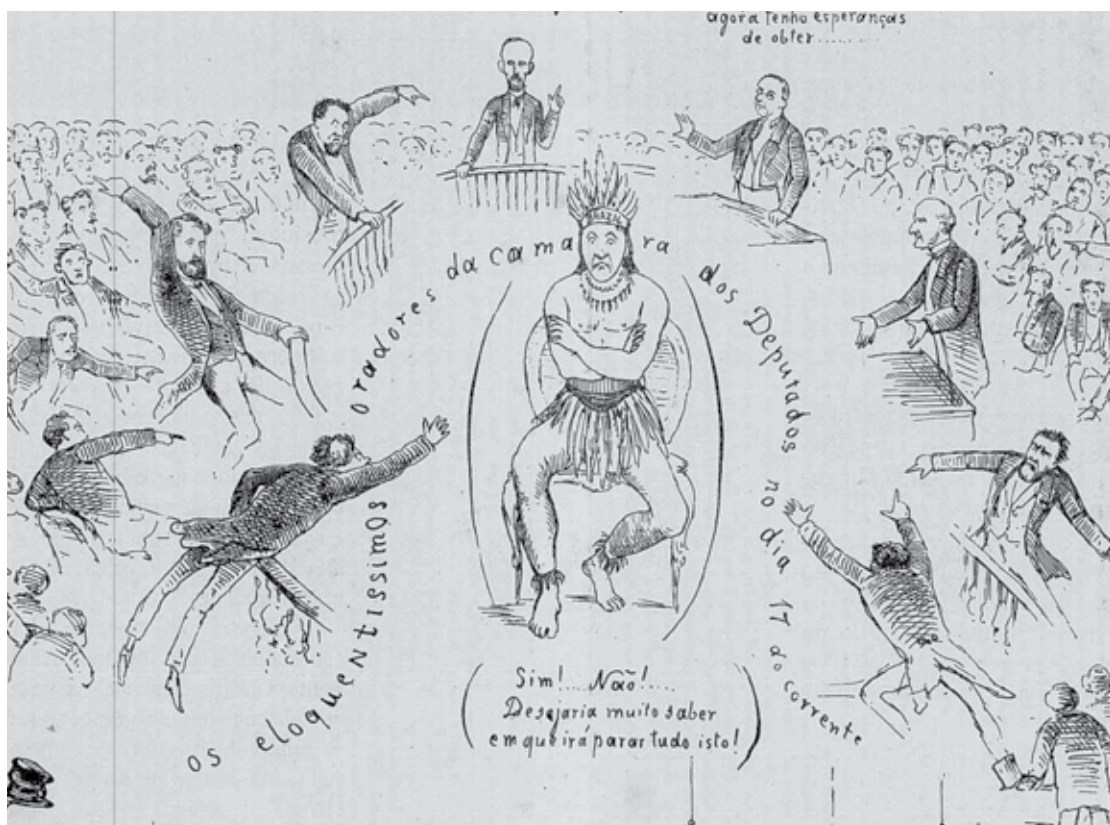 agora tenho esperanças
de obter........
os eloquentissimos oradores da camara dos Deputados no dia 17 do corrente
Sim!....Não!....
Desejaria muito saber
em que irá parar tudo isto!